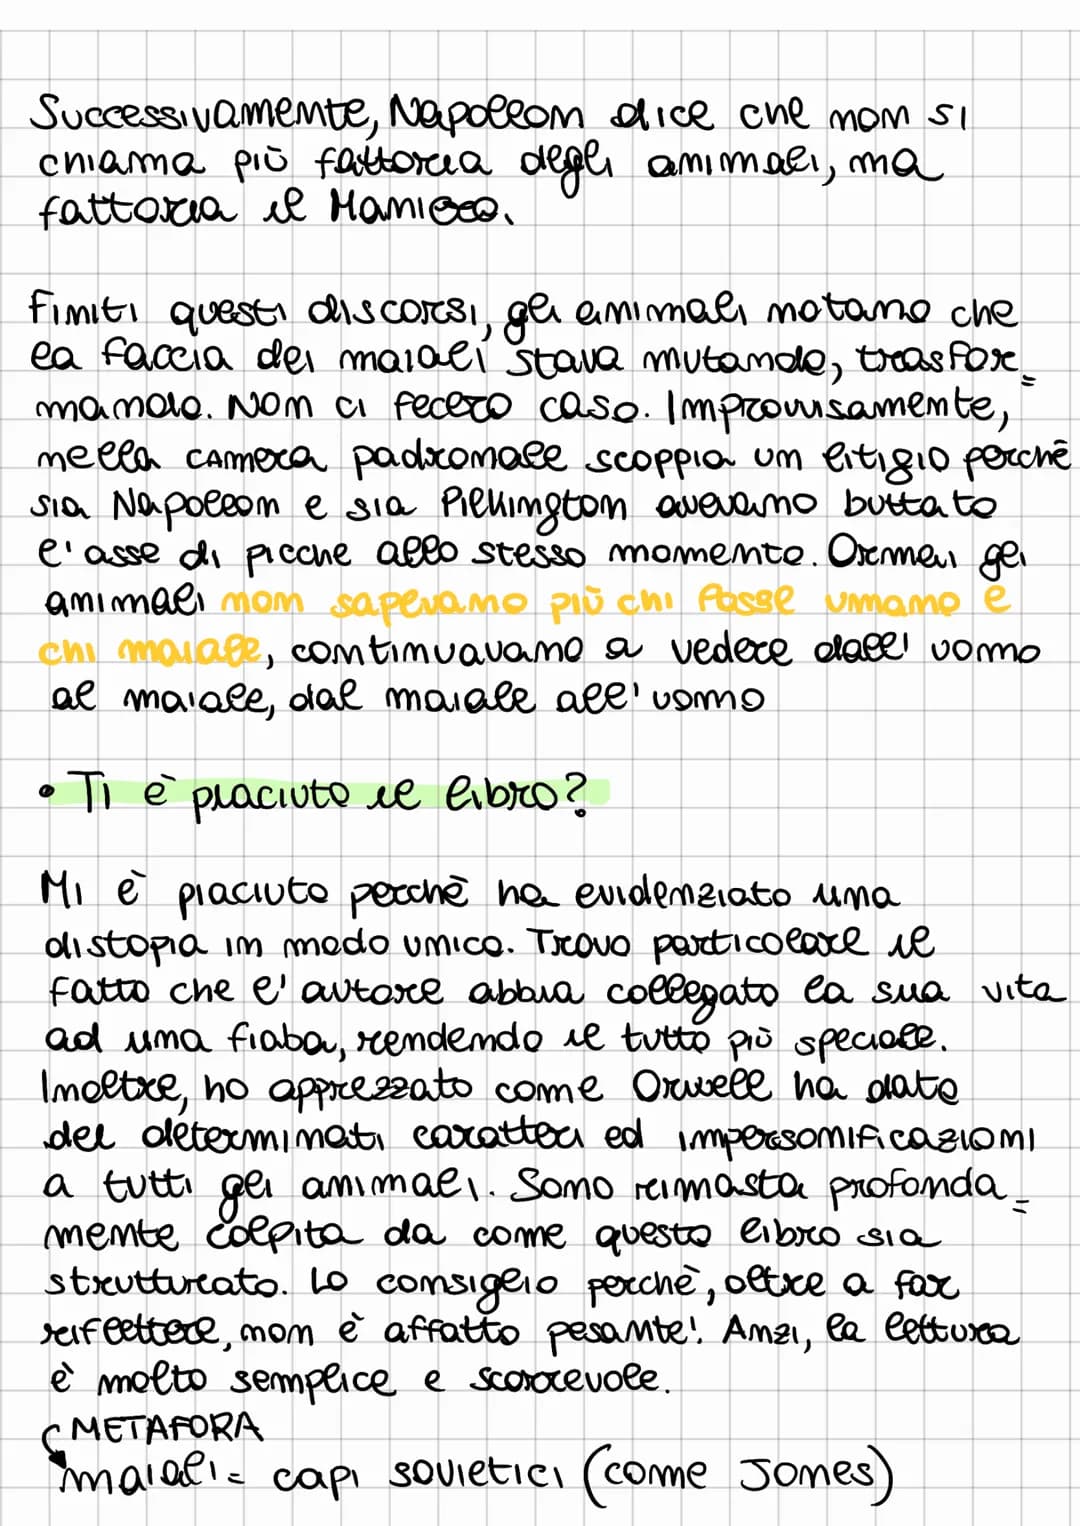 Successivamente, Napoleon dice che non si
chiama più fattoria degli animali, ma
fattoria il Manicro.
Finiti questi discorsi, gli animali notano che
la faccia dei maiali stava mutando, trasfor=
mando. Non ci fecero caso. Improvvisamente,
nella camera padronale scoppia un litigio perchè
sia Napoleon e sia Pilkington avevano buttato
l'asse di picche allo stesso momento. Ormai gli
animali non sapevano più chi fosse umano e
chi maiale, continuavano a vedere dall' uomo
al maiale, dal maiale all' uomo
• Ti è piaciuto il libro?
Mi è piaciuto perchè ha evidenziato una
distopia in modo unico. Trovo particolare il
fatto che l' autore abbia collegato la sua vita
ad una fiaba, rendendo il tutto più speciale.
Inoltre, ho apprezzato come Orwell ha dato
dei determinati caratteri ed impersonificazioni
a tutti gli animali. Sono rimasta profonda=
mente colpita da come questo libro sia
strutturato. Lo consiglio perchè, oltre a far
riflettere, non è affatto pesante! Anzi, la lettura
è molto semplice e scorrevole.
METAFORA
maiali= capi sovietici (come Jones)